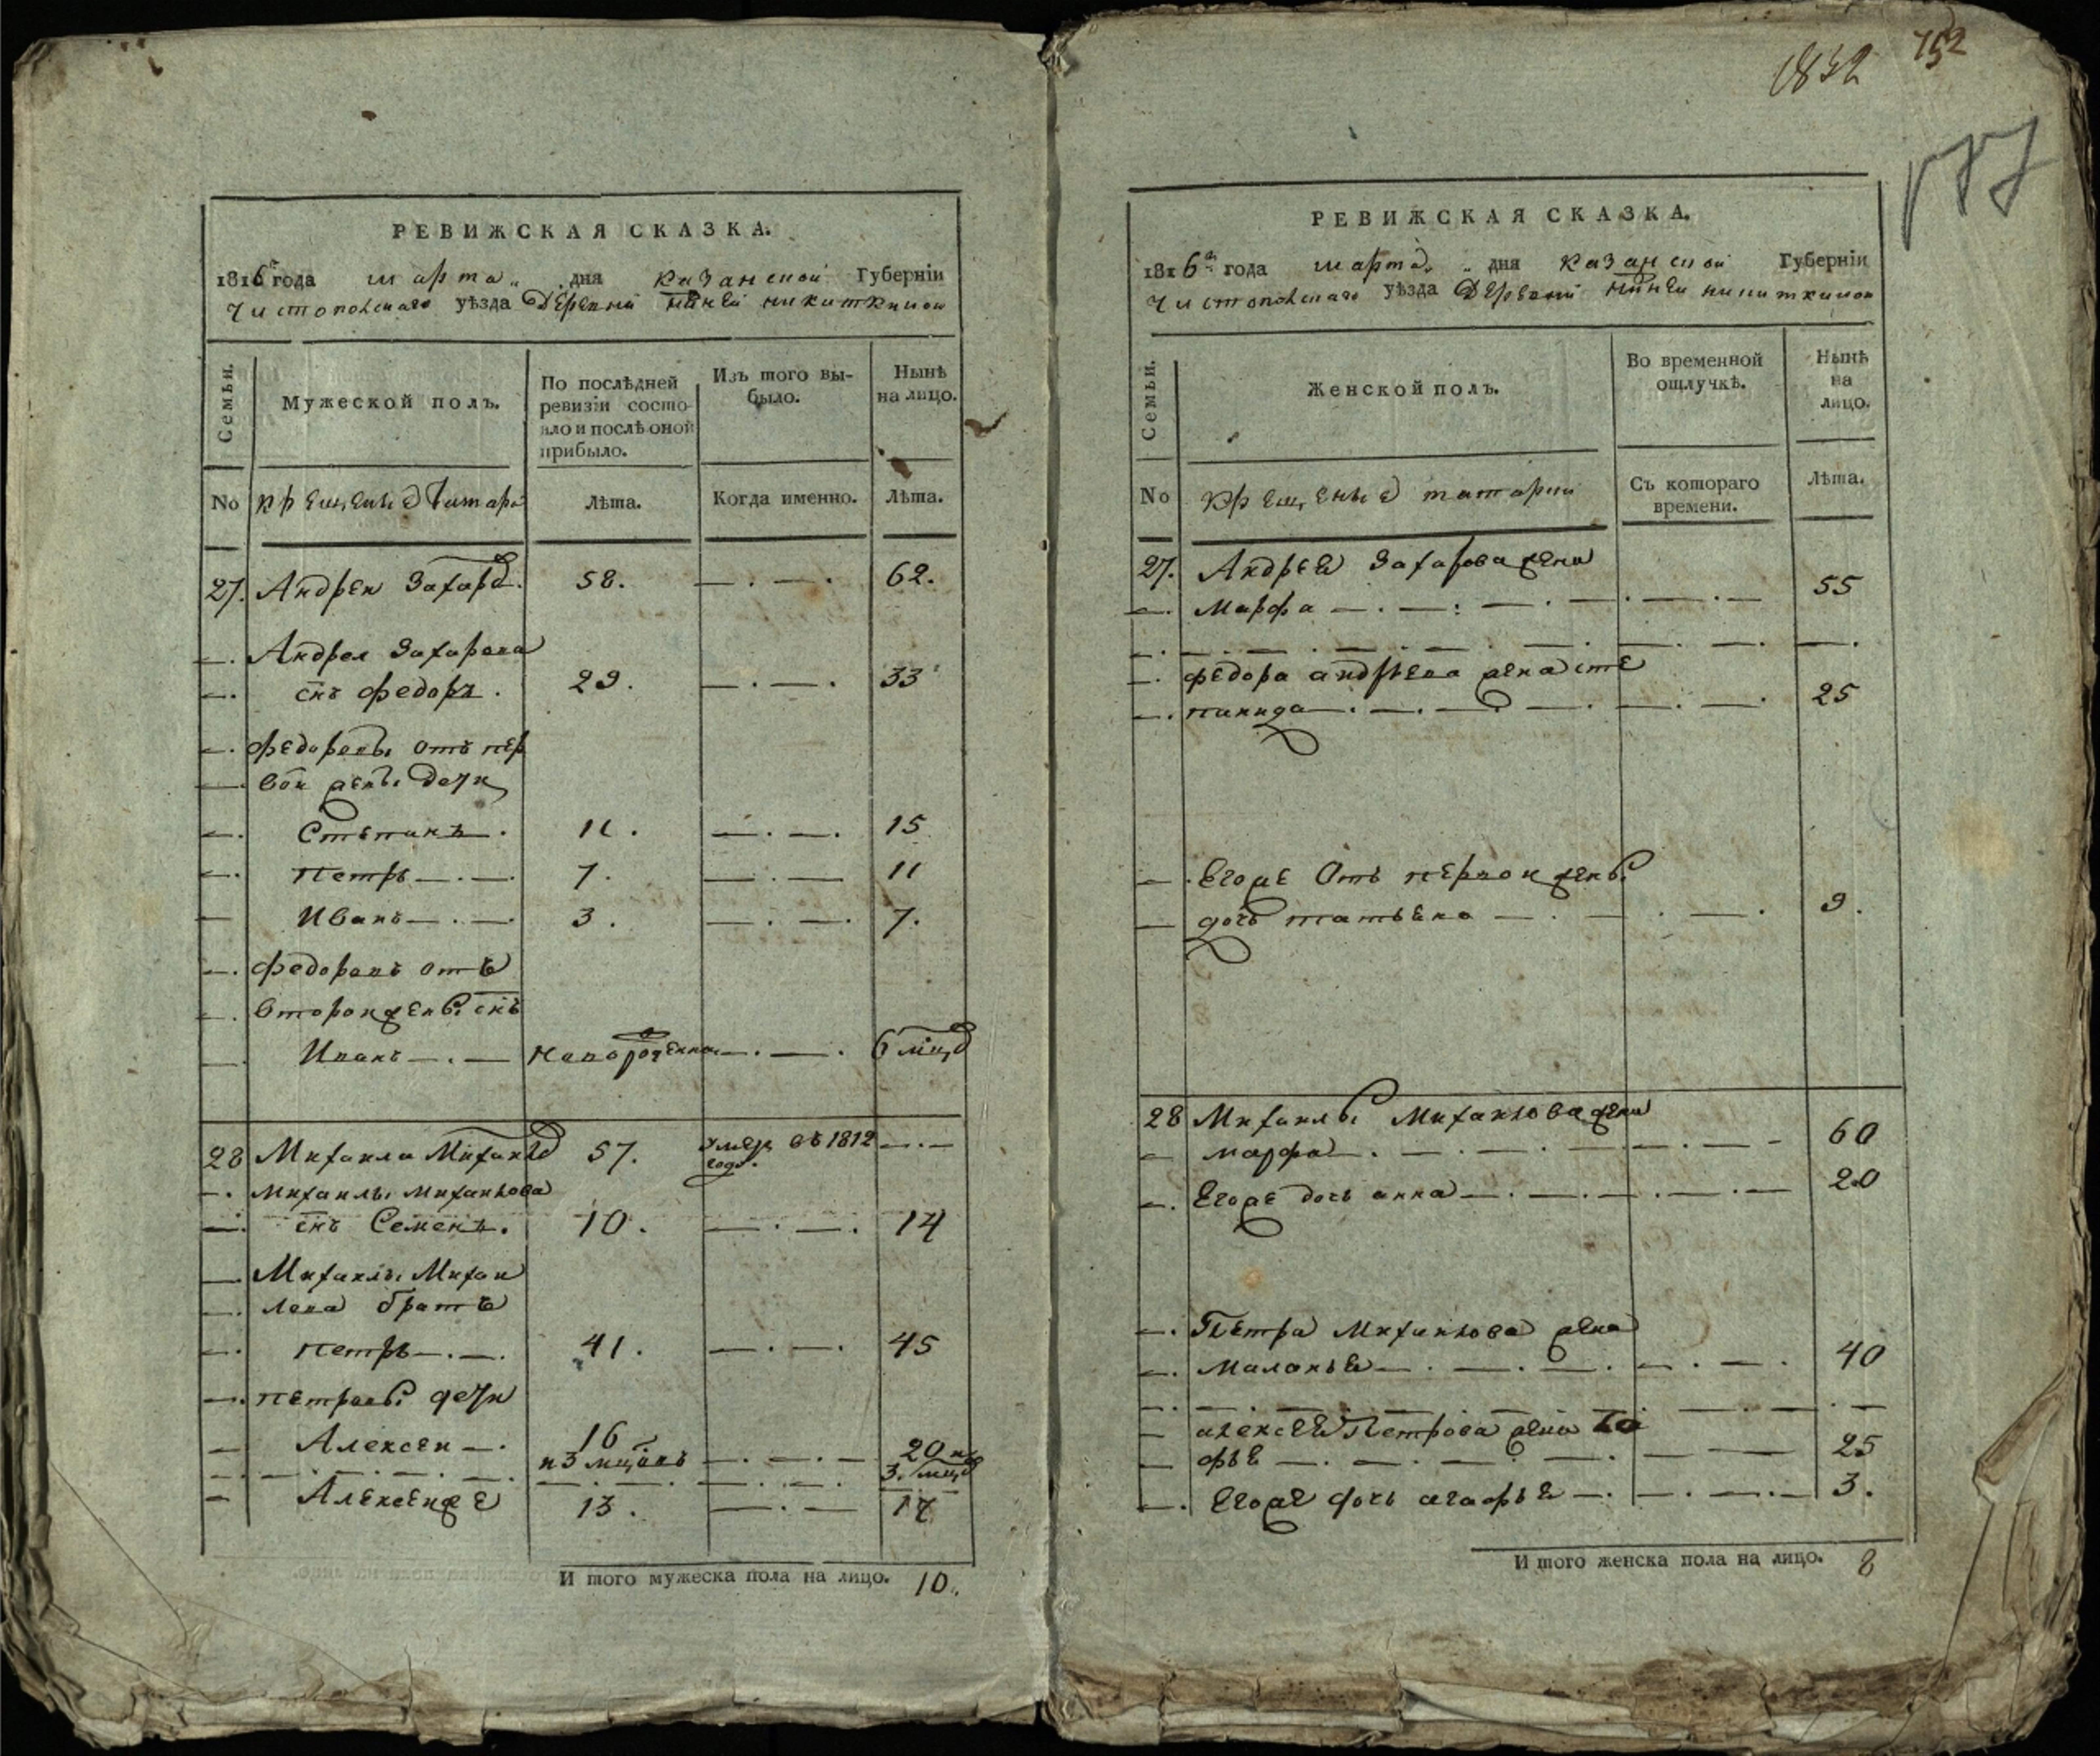 РЕВИЖСКАЯ СКАЗКА.
1816го года марта „ „ дня Казанской Губернїи
Чистопольскаго уѣзда Деревни Нижней Никиткиной
Семьи.
Мужеской полъ.
По послѣдней
ревизїи состо-
яло и послѣ оной
прибыло.
Изъ того вы-
было.
Нынѣ
на лицо.
No Крещеные татара
Лѣта.
Когда именно.
Лѣта.
27. Андреи Захаровъ. 58. —.—. 62.
—. Андрея Захарова
—. снъ федоръ. 29. —.—. 33
—. федоровы отъ пер
—. вои жены дети
—. Степанъ. 11. —.—. 15
—. петръ—.—. 7. —.— 11
— Иванъ—.—. 3. —.—. 7.
—. федоровъ отъ
—. второи жены снъ
— Иванъ—.— Новорожденнои—.—. 6 мцов
28 Михаила Михаиловъ 57. умеръ въ 1812 —.—
году.
—. михаилы михаилова
—. снъ Семенъ. 10. —.—. 14
— Михаилы Михаи
—. лова братъ
—. петръ—.—. 41. —.—. 45
—. петровы дети
— Алексеи—. 16 —.—.— 20 и
и 3 мцовъ 3. мцов
— Алексеиже 13. —.— 17
И того мужеска пола на лицо. 10.
1832 752
РЕВИЖСКАЯ СКАЗКА.
1816го года марта „ „ дня Казанской Губернїи
Чистопольскаго уѣзда Деревни Нижней Никиткиной
Семьи.
Женской полъ.
Во временной
отлучкѣ.
Нынѣ
на
лицо.
No Крещеные татарки
Съ котораго
времени.
Лѣта.
27. Андрея Захарова жена
—. марфа —.—.—.—.—.— 55
—. федора андреева жена сте
—. панида—.—.—.—.—.—. 25
—. Егоже отъ первои жены
— дочь татьена —.—.—. 9.
28 Михаилы Михаилова жена
— марфа—.—.—.—.—.- 60
—. Егоже дочь анна—.—.—.—.— 20
—. Петра Михаилова жена
—. маланья—.—.—.—.—. 40
— алексея Петрова жена
— фье —.—.—.—.— 25
—. Егоже дочь агафья —.—.—.— 3.
И того женска пола на лицо. 8